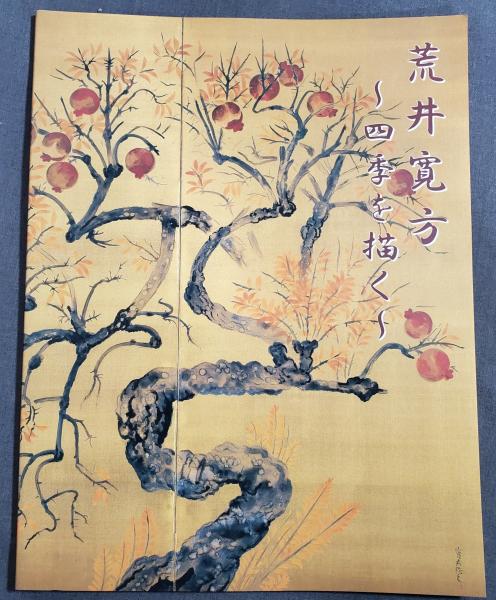 荒井寛方
～四季を描く～